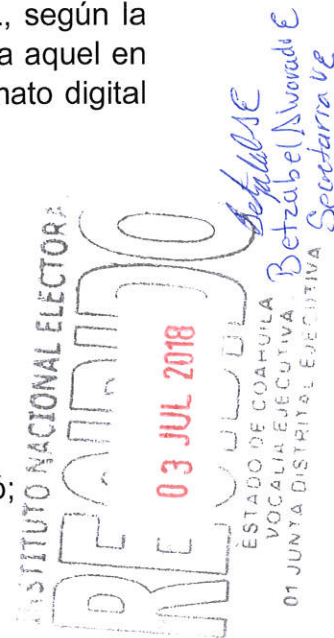 ., según la
a aquel en
nato digital
ó;
INSTITUTO NACIONAL ELECTORA
RECIBIDO
03 JUL 2018
ESTADO DE COAHUILA
VOCALIA EJECUTIVA
01 JUNTA DISTRITAL EJECUTIVA
Betzabel Alvorado E
Secretaria VE